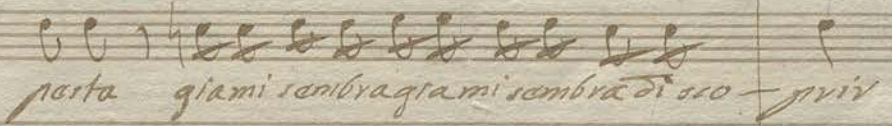 pesta giami sembra giami sembra di sco - prir